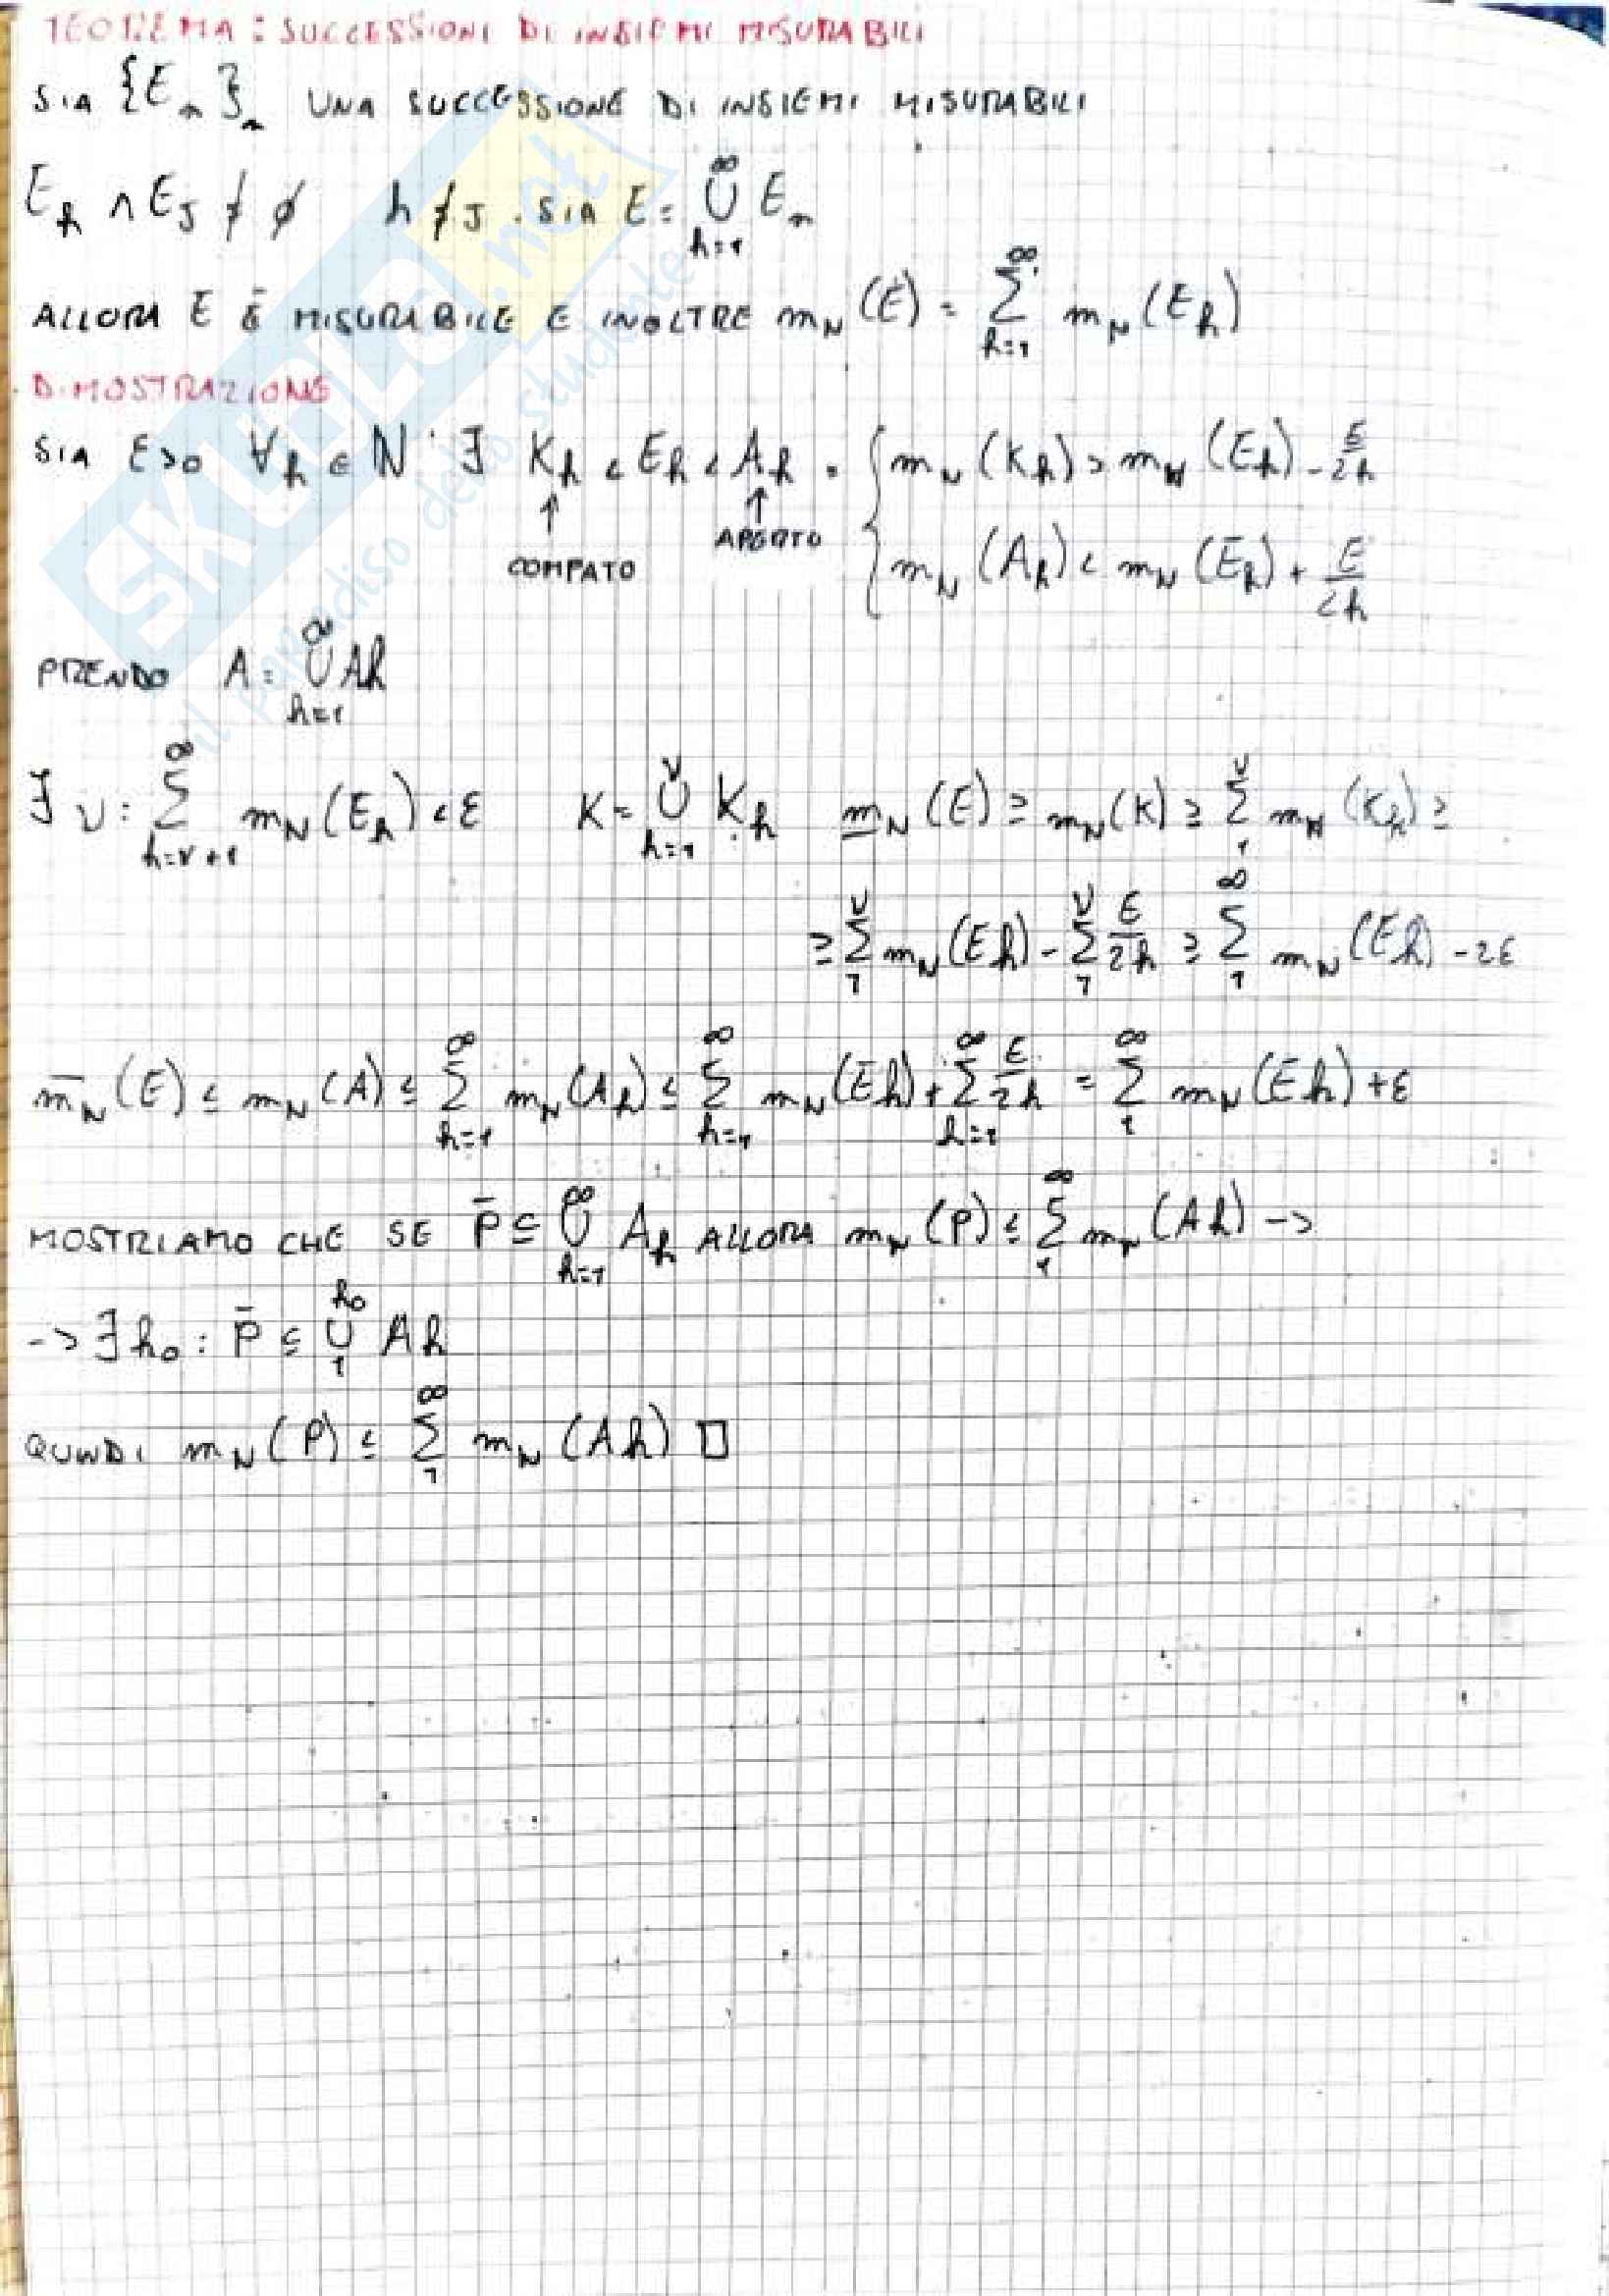 TEOREMA: SUCCESSIONI DI INSIEMI MISURABILI
SIA {E_n}_n UNA SUCCESSIONE DI INSIEMI MISURABILI
E_h ∩ E_J ≠ ∅ h ≠ J . SIA E = ∪_{h=1}^{∞} E_n
ALLORA E È MISURABILE E INOLTRE m_N (E) = Σ_{h=1}^{∞} m_N (E_h)
DIMOSTRAZIONE
SIA ε>0 ∀h ∈ N ∃ K_h ⊂ E_h ⊂ A_h : { m_N (K_h) > m_N (E_h) - ε/2h
↑ COMPATO ↑ APERTO m_N (A_h) < m_N (E_h) + ε/2h
PRENDO A = ∪_{h=1}^{∞} Ah
∃ ν : Σ_{h=ν+1}^{∞} m_N (E_h) < ε K = ∪_{h=1}^{ν} K_h m_N (E) ≥ m_N (K) ≥ Σ_{1}^{ν} m_N (K_h) ≥
≥ Σ_{1}^{ν} m_N (Eh) - Σ_{1}^{ν} ε/2h ≥ Σ_{1}^{∞} m_N (Eh) - 2ε
m̄_N (E) ≤ m_N (A) ≤ Σ_{h=1}^{∞} m_N (Ah) ≤ Σ_{h=1}^{∞} m_N (Eh) + Σ_{h=1}^{∞} ε/2h = Σ_{1}^{∞} m_N (Eh) + ε
MOSTRIAMO CHE SE P̄ ⊆ ∪_{h=1}^{∞} A_h ALLORA m_N (P) ≤ Σ_{1}^{∞} m_N (Ah) ->
-> ∃ h_0 : P̄ ⊆ ∪_{1}^{h_0} Ah
QUINDI m_N (P) ≤ Σ_{1}^{∞} m_N (Ah) □
SKUOLA.net
il paradiso dello studente